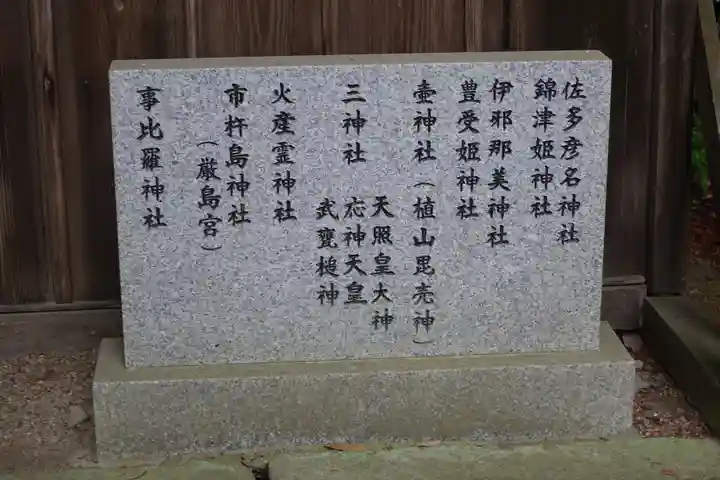 佐多彦名神社
錦津姫神社
伊邪那美神社
豊受姫神社
壷神社（植山毘売神）
三神社 天照皇大神
応神天皇
武甕槌神
火産霊神社
市杵島神社
（厳島宮）
事比羅神社